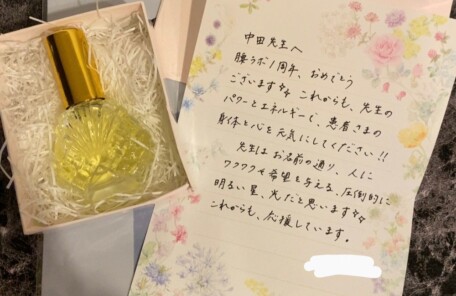 中田先生へ
腰ラボ1周年、おめでとう
ございます✨ これからも、先生の
パワーとエネルギーで、患者さまの
身体と心を元気にしてください!!
先生はお名前の通り、人に
ワクワクや希望を与える、圧倒的に
明るい星、光だと思います✨
これからも、応援しています。